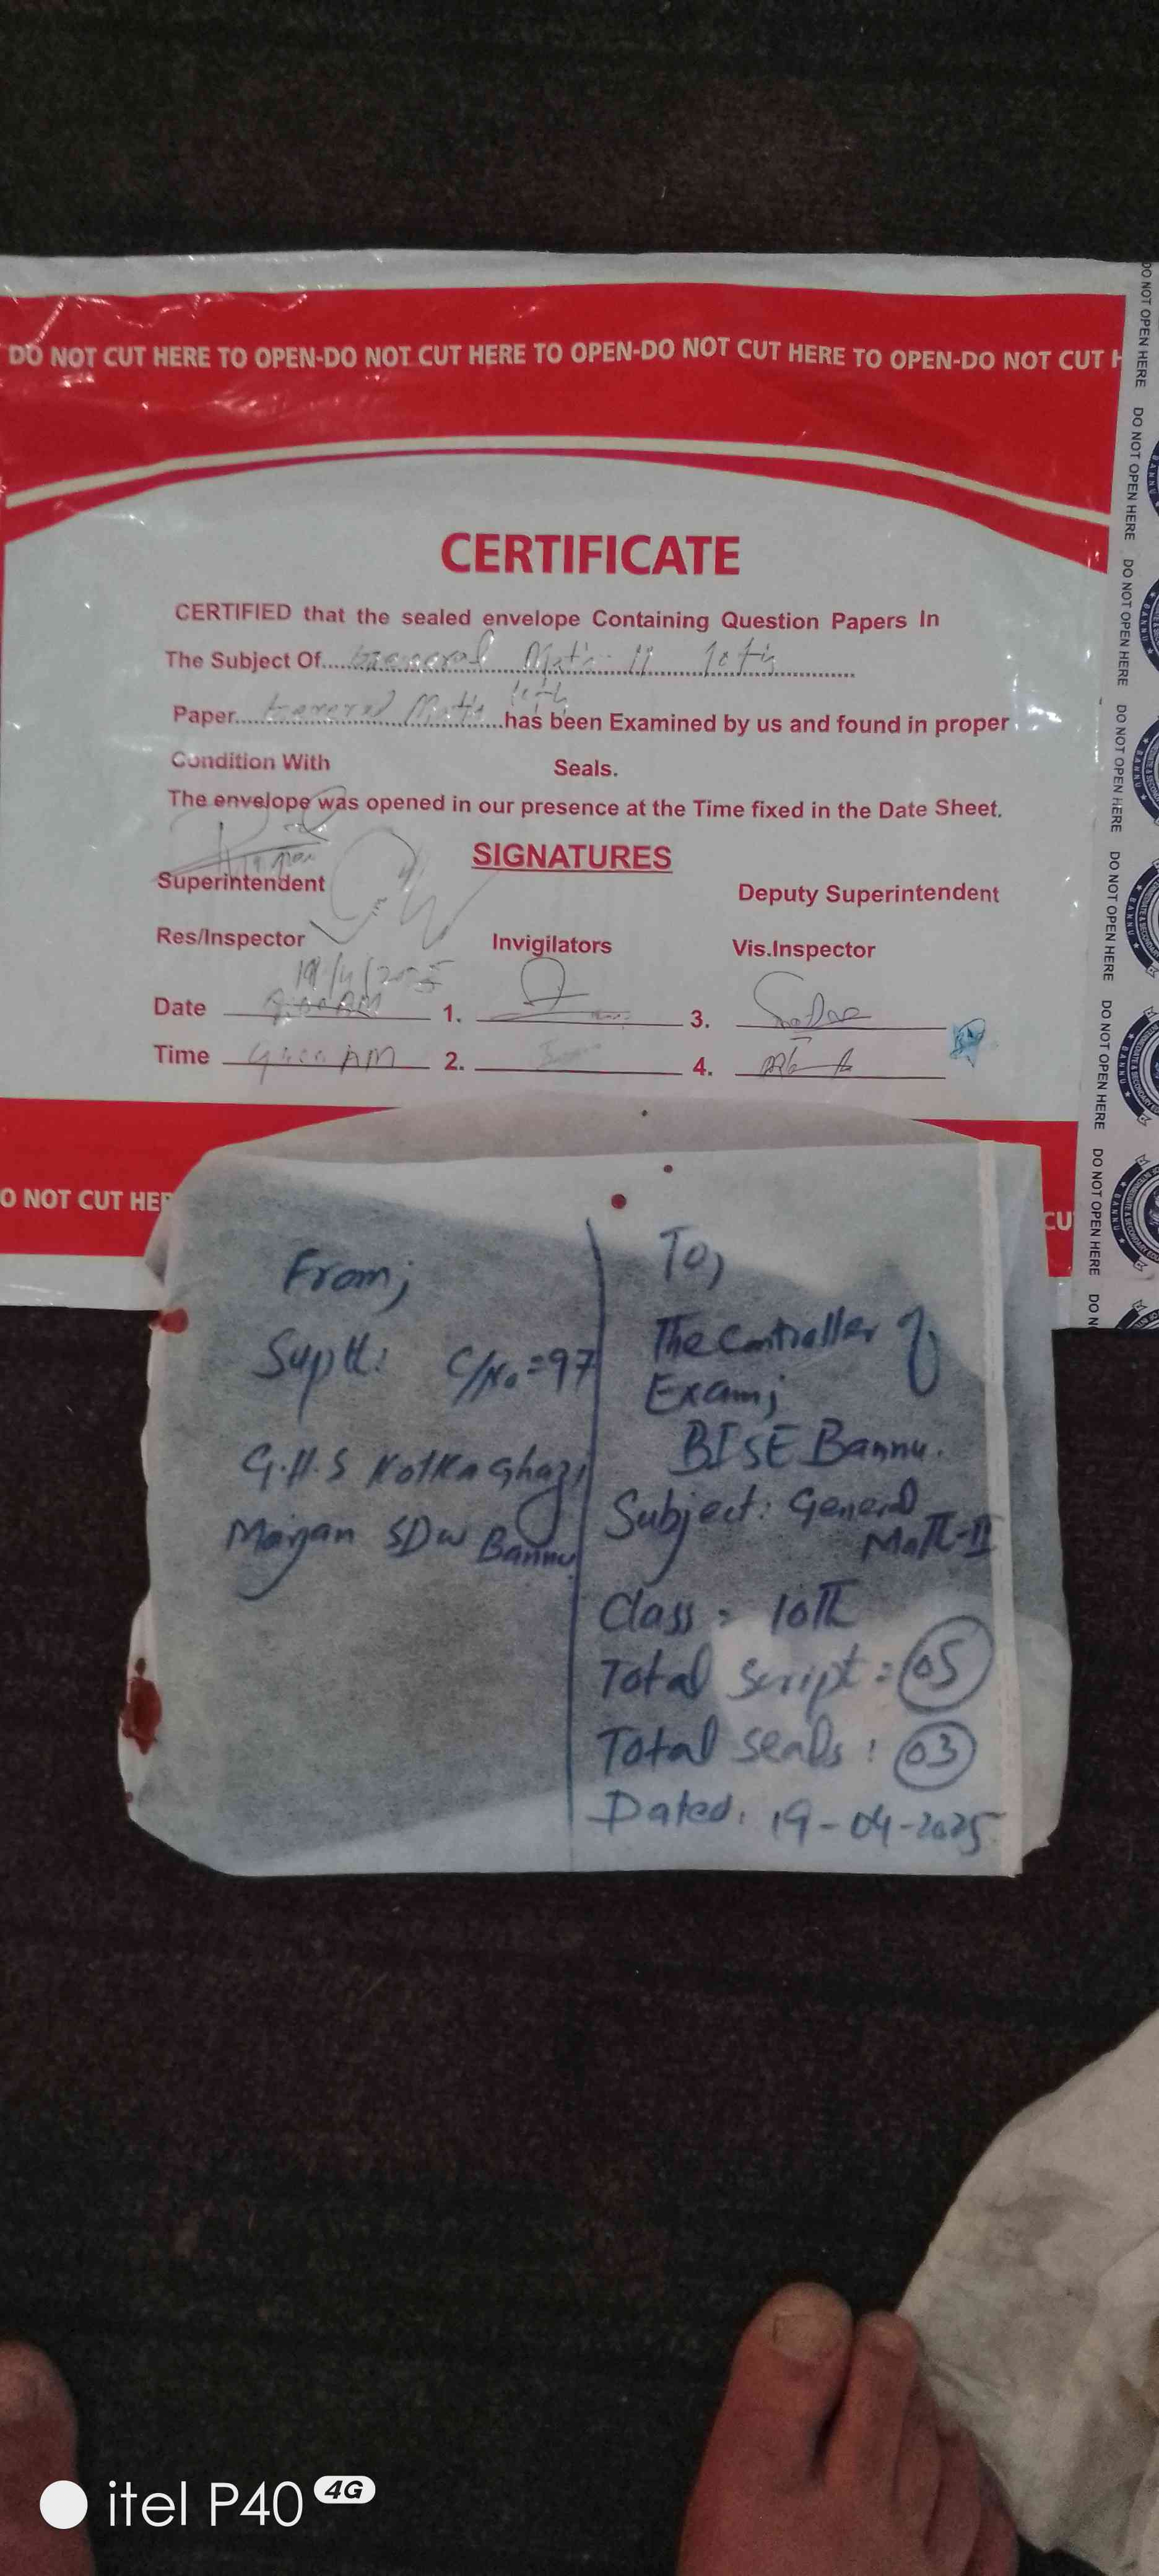 DO NOT CUT HERE TO OPEN-DO NOT CUT HERE TO OPEN-DO NOT CUT HERE TO OPEN-DO NOT CUT H
CERTIFICATE
CERTIFIED that the sealed envelope Containing Question Papers In
The Subject Of.....General Math II 10th
Paper....General Math 10th....has been Examined by us and found in proper
Condition With Seals.
The envelope was opened in our presence at the Time fixed in the Date Sheet.
SIGNATURES
Superintendent
Deputy Superintendent
Res/Inspector
Invigilators
Vis.Inspector
Date 19/4/2025 1. 3.
Time 9:00 AM 2. 4.
O NOT CUT HER
CU
DO NOT OPEN HERE DO NOT OPEN HERE DO NOT OPEN HERE DO NOT OPEN HERE DO NOT OPEN HERE DO NOT OPEN HERE DO NOT OPEN HERE DO N
BANNU
From;
Suptt: C/No=97
G.H.S Kotka Ghazi
Marjan SDW Bannu
To,
The Controller of
Exam;
BISE Bannu.
Subject: General
Math-II
Class: 10th
Total Script = 05
Total seals: 03
Dated: 19-04-2025
itel P40 4G